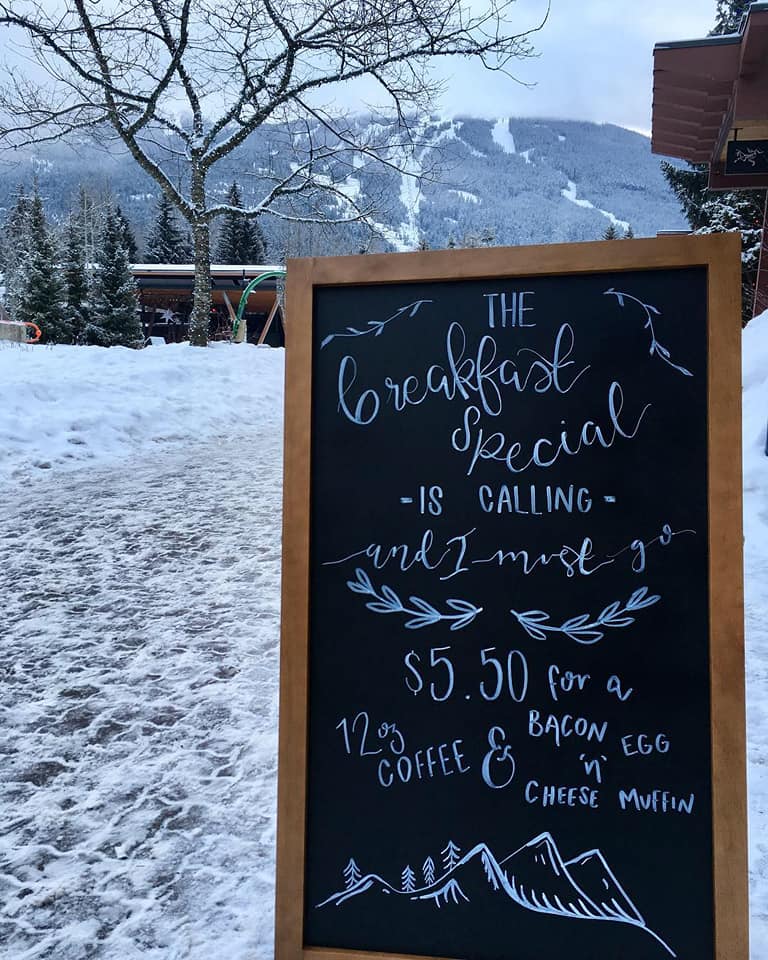 THE
breakfast
special
-IS CALLING-
and I must go
$5.50 for a
12oz COFFEE & BACON EGG
'n'
CHEESE MUFFIN